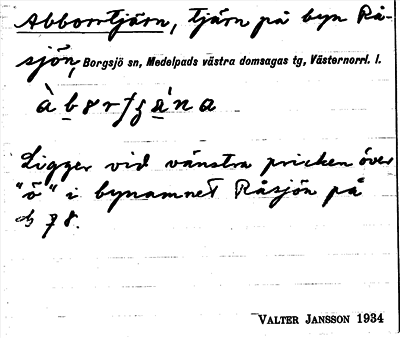 Abborrtjärn, tjärn på byn Rå-
sjön, Borgsjö sn, Medelpads västra domsagas tg, Västernorrl. l.
Ligger vid vänstra pricken över
"ö" i bynamnet Råsjön på
78.
VALTER JANSSON 1934